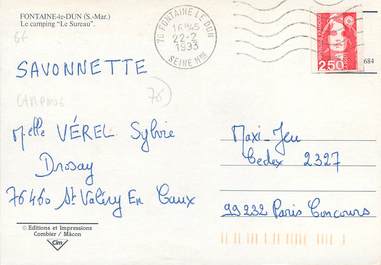 FONTAINE-le-DUN (S.-Mar.)
Le camping "Le Sureau".
76 FONTAINE LE DUN
16H45
22-2
1993
SEINE Mme
2,50
684
SAVONNETTE
CAMPING
76
Melle VÉREL Sylvie
Drosay
76460 St Valéry En Caux
Maxi-Jeu
Cedex 2327
99232 Paris Concours
© Editions et Impressions
Combier / Mâcon
Cim